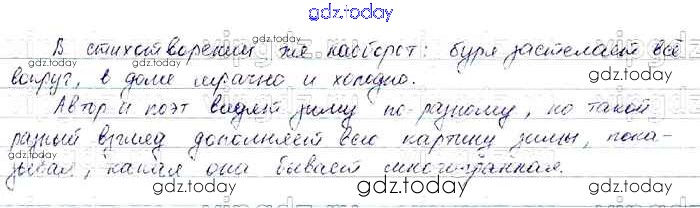 gdz.today
В стихотворении же наоборот: буря застелает всё
gdz.today gdz.today
вокруг, в доме мрачно и холодно.
Автор и поэт видят зиму по-разному, но такой
gdz.today gdz.today
разный взгляд дополняет всю картину зимы, пока-
gdz.today
зывая, какая она бывает многогранная.
gdz.today gdz.today